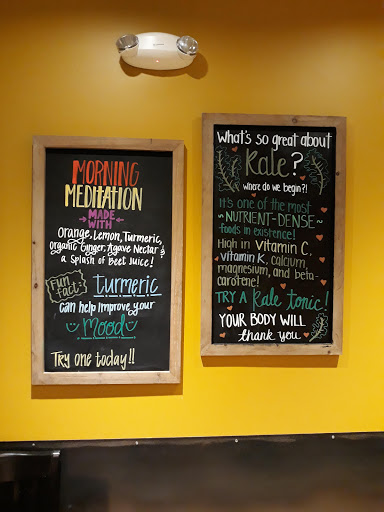 MORNING
MEDITATION
MADE
WITH
Orange, Lemon, Turmeric,
Organic Ginger, Agave Nectar &
a splash of Beet Juice!
Fun
fact:
turmeric
can help improve your
mood
Try one today!!
What's so great about
Kale?
where do we begin?!
It's one of the most
~NUTRIENT-DENSE~
foods in existence!
High in vitamin C,
vitamin K, calcium,
magnesium, and beta-
carotene!
TRY A kale tonic!
YOUR BODY WILL
thank you